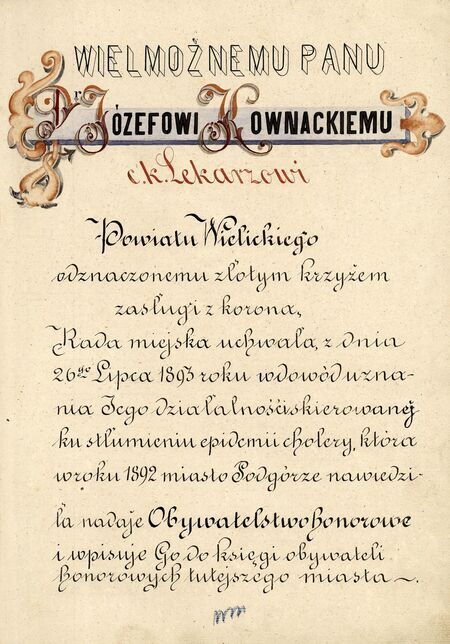 WIELMOŻNEMU PANU
Dr Józefowi Kownackiemu
c.k. Lekarzowi
Powiatu Wielickiego
odznaczonemu złotym krzyżem
zasługi z koroną,
Rada miejska uchwałą z dnia
26go Lipca 1893 roku w dowód uzna-
nia Jego działalności skierowanej
ku stłumieniu epidemii cholery, która
w roku 1892 miasto Podgórze nawiedzi-
ła nadaje Obywatelstwo honorowe
i wpisuje Go do księgi obywateli
honorowych tutejszego miasta